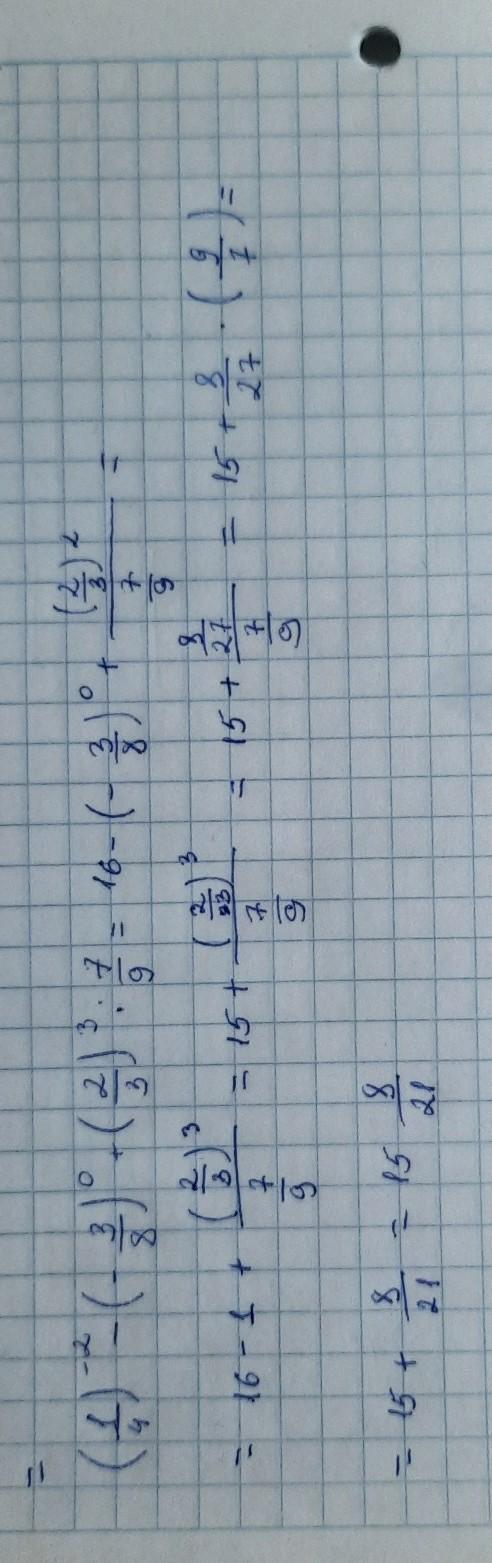 =
(1/4)^-2 - (-3/8)^0 + (2/3)^3 : 7/9 = 16 - (-3/8)^0 + (2/3)^2 / (7/9) =
= 16 - 1 + (2/3)^3 / (7/9) = 15 + (2/3)^3 / (7/9) = 15 + (8/27) / (7/9) = 15 + 8/27 · (9/7) =
= 15 + 8/21 = 15 8/21